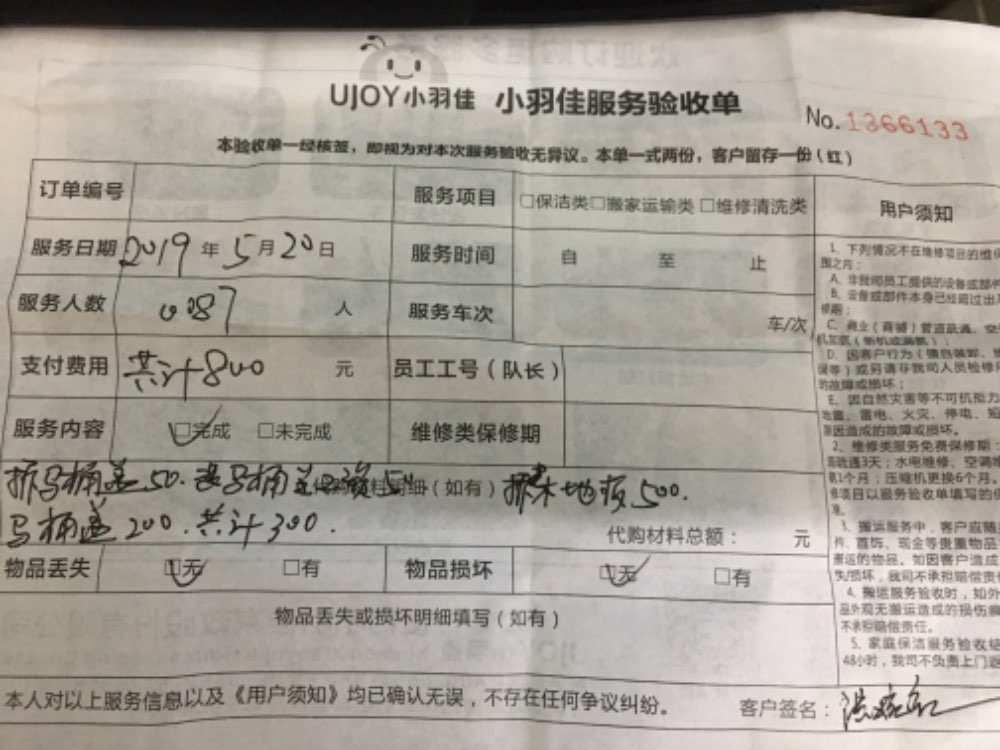 UJOY小羽佳 小羽佳服务验收单
No.1366133
本验收单一经核签，即视为对本次服务验收无异议。本单一式两份，客户留存一份（红）
订单编号 服务项目 □保洁类□搬家运输类 □维修清洗类
服务日期 2019年5月20日 服务时间 自 至 止
服务人数 0087 人 服务车次 车/次
支付费用 共计800 元 员工工号（队长）
服务内容 ☑完成 □未完成 维修类保修期
拆马桶盖50. 马桶盖 料明细（如有） 木地板500.
马桶盖200.共计300. 代购材料总额： 元
物品丢失 ☑无 □有 物品损坏 ☑无 □有
物品丢失或损坏明细填写（如有）
本人对以上服务信息以及《用户须知》均已确认无误，不存在任何争议纠纷。 客户签名：
用户须知
1、下列情况不在维修项目的维
围之内：
A、非我司员工提供的设备或部件
B、设备或部件本身已经超过出
修期；
C、商业（商铺）管道疏通、空
D、因客户行为（
误等）或另请非我司人员检修
的故障或损坏；
E、因自然灾害等不可抗拒力
地震、雷电、火灾、停电、短
原因造成的故障或损坏。
2、维修类服务免费保修期：
疏通3天；水电维修、空调
1个月；压缩机更换6个月。
项目以服务验收单填写的
3、搬运服务中，客户应随
件、首饰、现金等贵重物品
搬运的物品。如因客户造成
失/损坏，我司不承担赔偿责
4、搬运服务验收时，如外
品外观无搬运造成的损伤
不承担赔偿责任。
5、家庭保洁服务验收
48小时，我司不负责上门